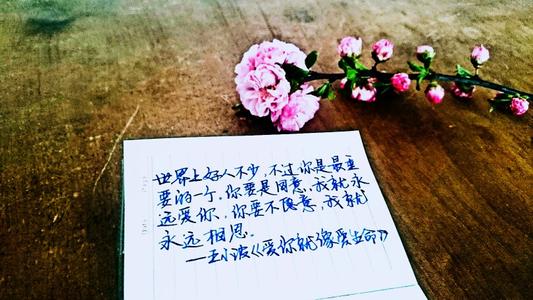 世界上好人不少,不过你是最重
要的一个。你要是同意,我就永
远爱你,你要不愿意,我就
永远相思。
——王小波《爱你就像爱生命》